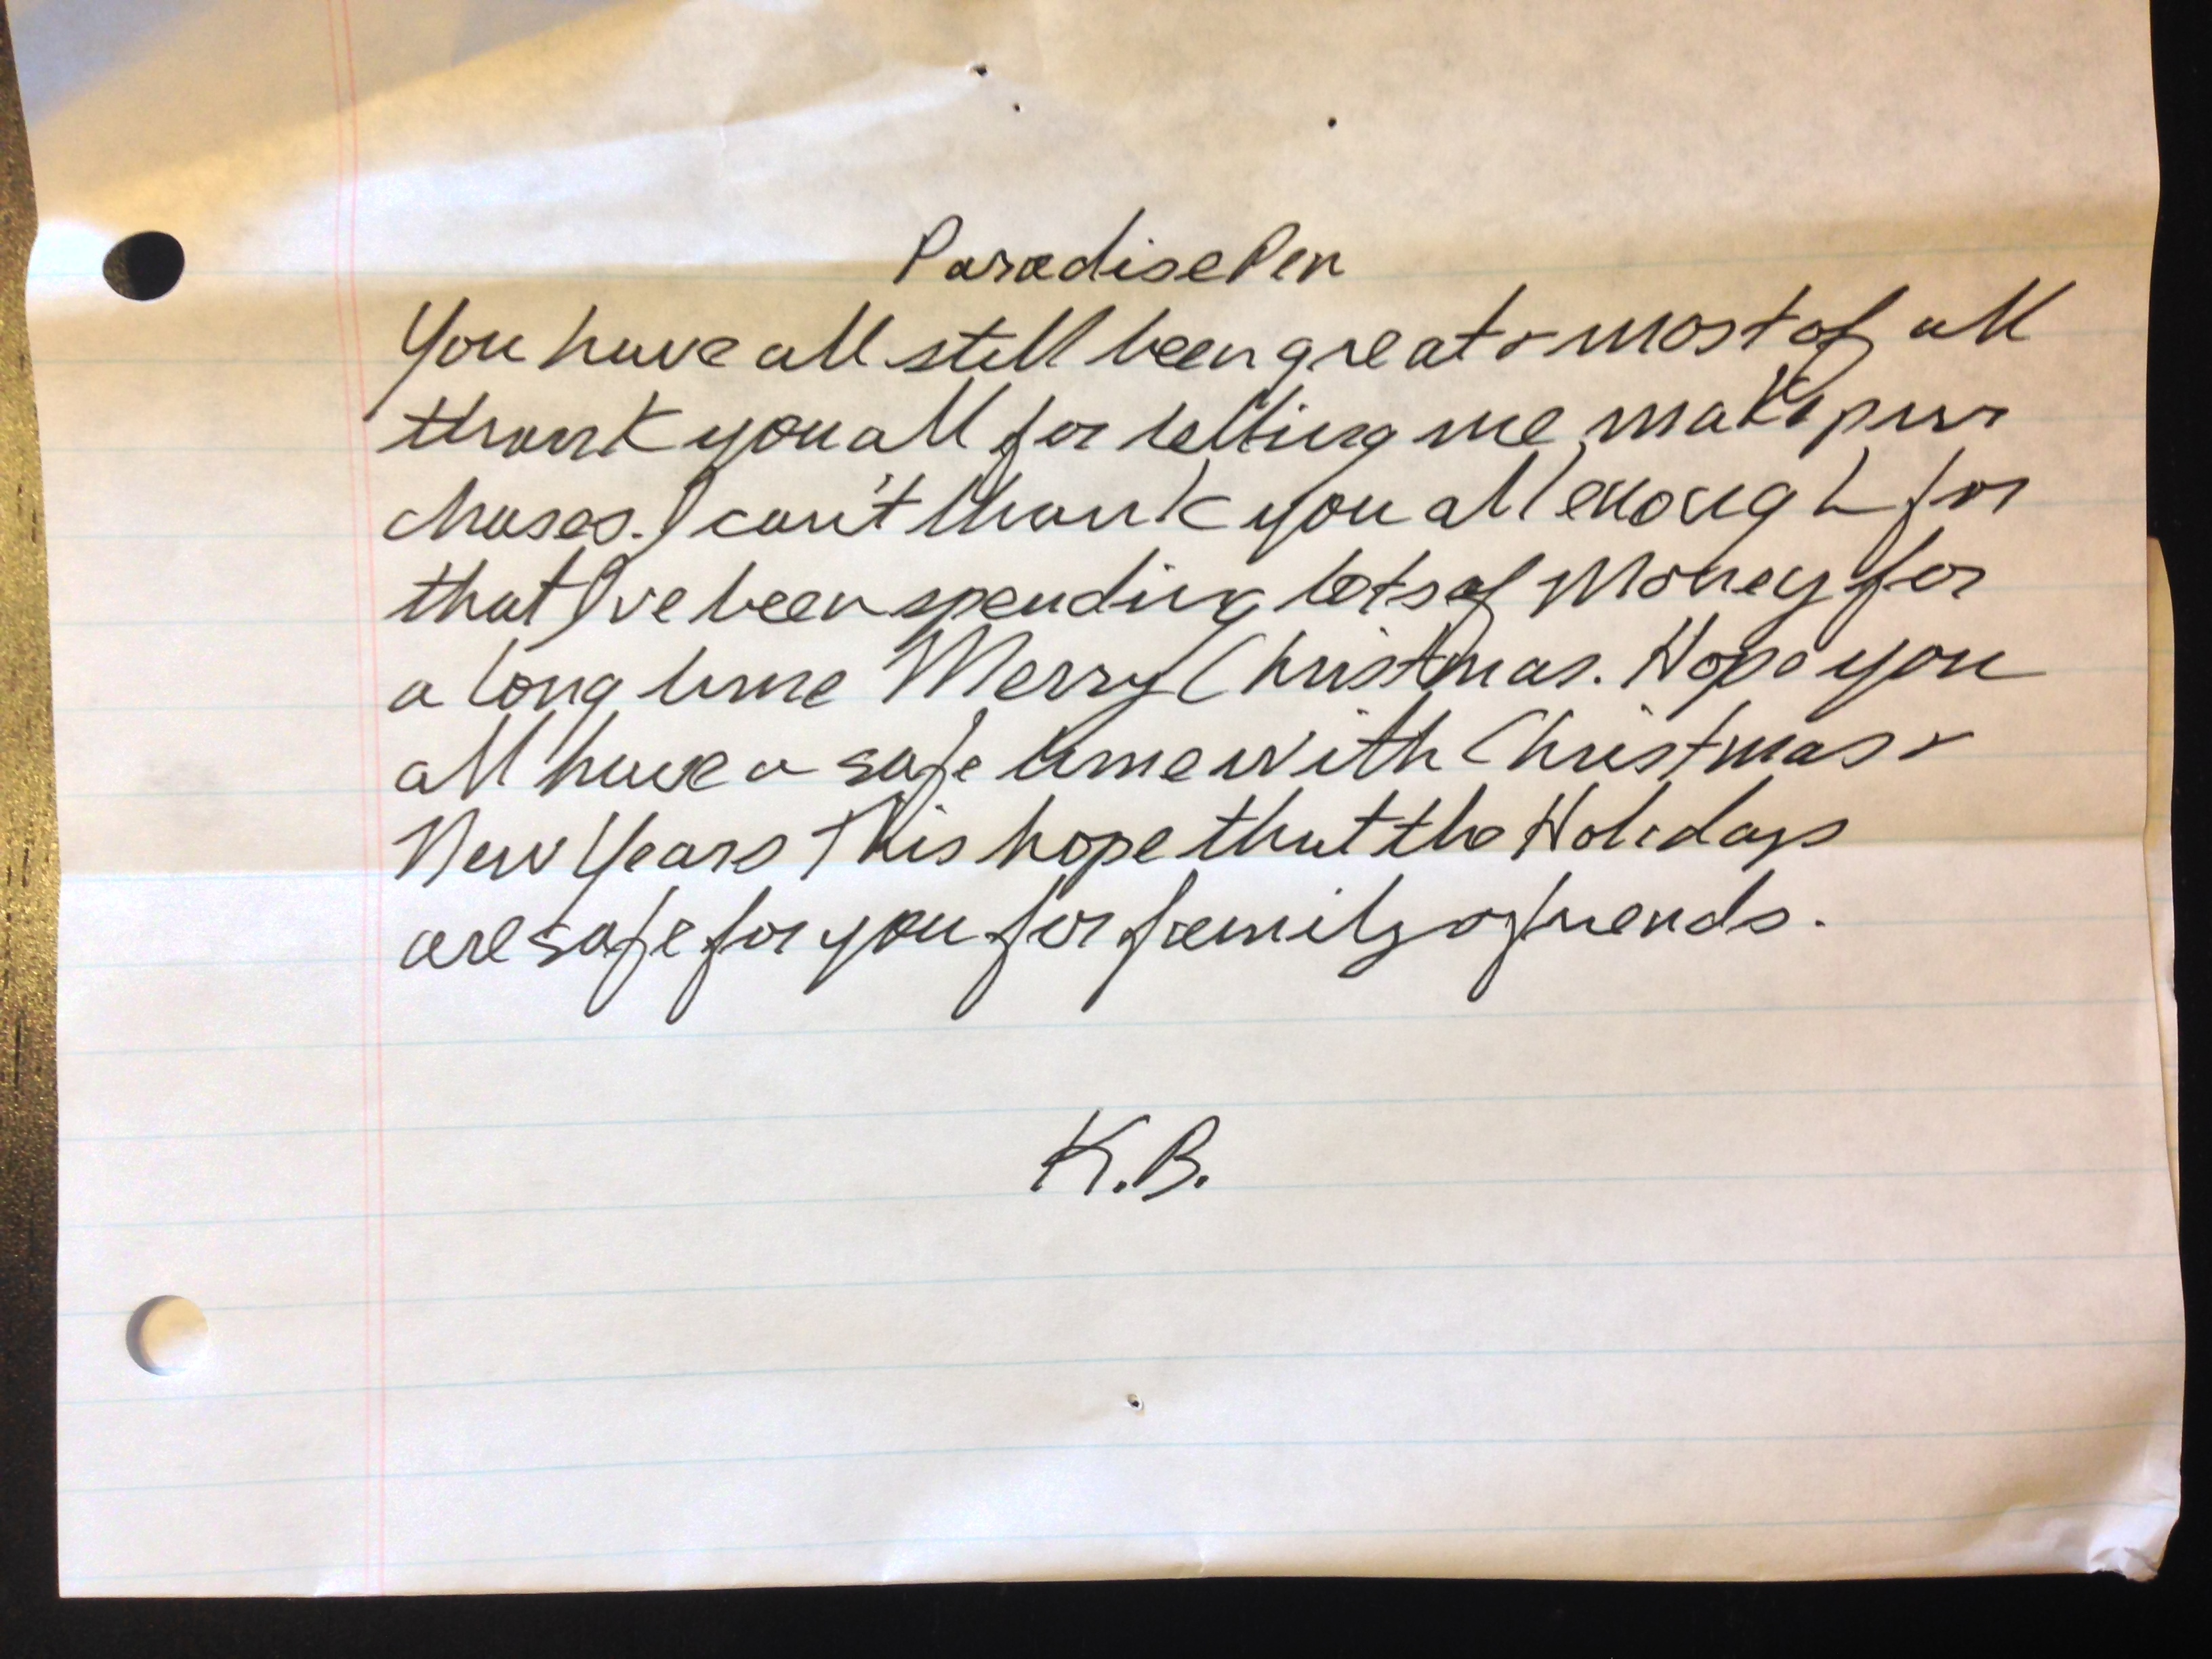 Paradise Pen
You have all still been great & most of all
thank you all for letting me make pur
chases. I can't thank you all enough for
that I've been spending lots of Money for
a long time Merry Christmas. Hope you
all have a safe time with Christmas &
New Years This hope that the Holidays
are safe for you for family & friends.
K.B.